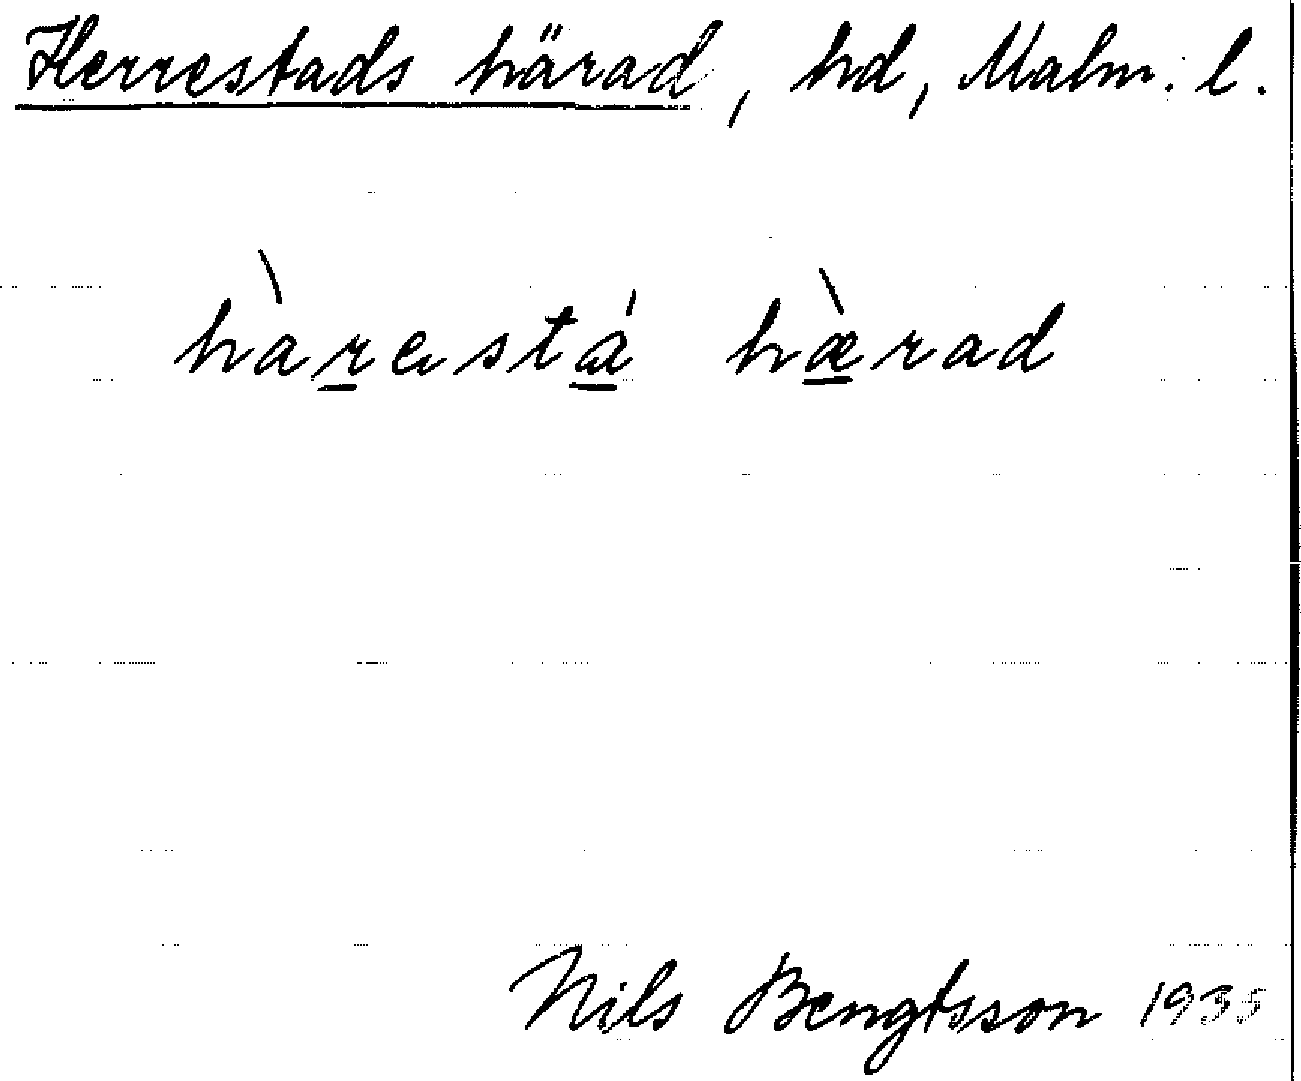 Herrestads härad, hd, Malm. l.
hàrestá hæ̀rad
Nils Bengtsson 1935